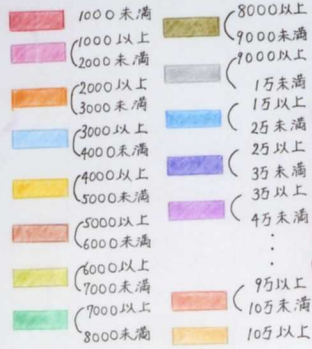 1000未満
1000以上
2000未満
2000以上
3000未満
3000以上
4000未満
4000以上
5000未満
5000以上
6000未満
6000以上
7000未満
7000以上
8000未満
8000以上
9000未満
9000以上
1万未満
1万以上
2万未満
2万以上
3万未満
3万以上
4万未満
9万以上
10万未満
10万以上